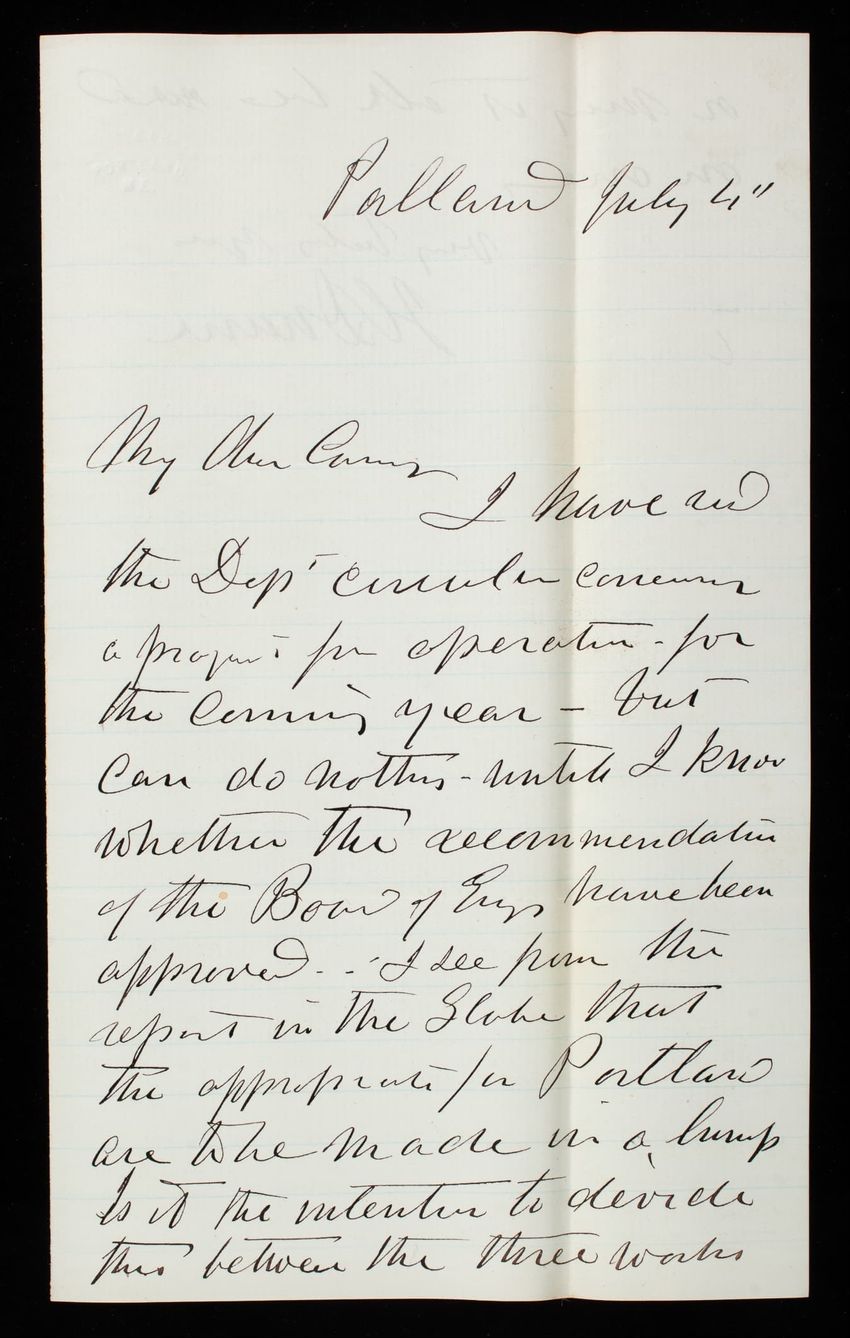 Portland July 4"
My Dear Casey
I have recd
the Dept circular concerning
a project for operations for
the coming year - but
can do nothing - until I know
whether the recommendation
of the Board of Engrs have been
approved. - I see from the
report in the Globe that
the appropriate for Portland
are to be made in a lump
Is it the intention to divide
this between the three works